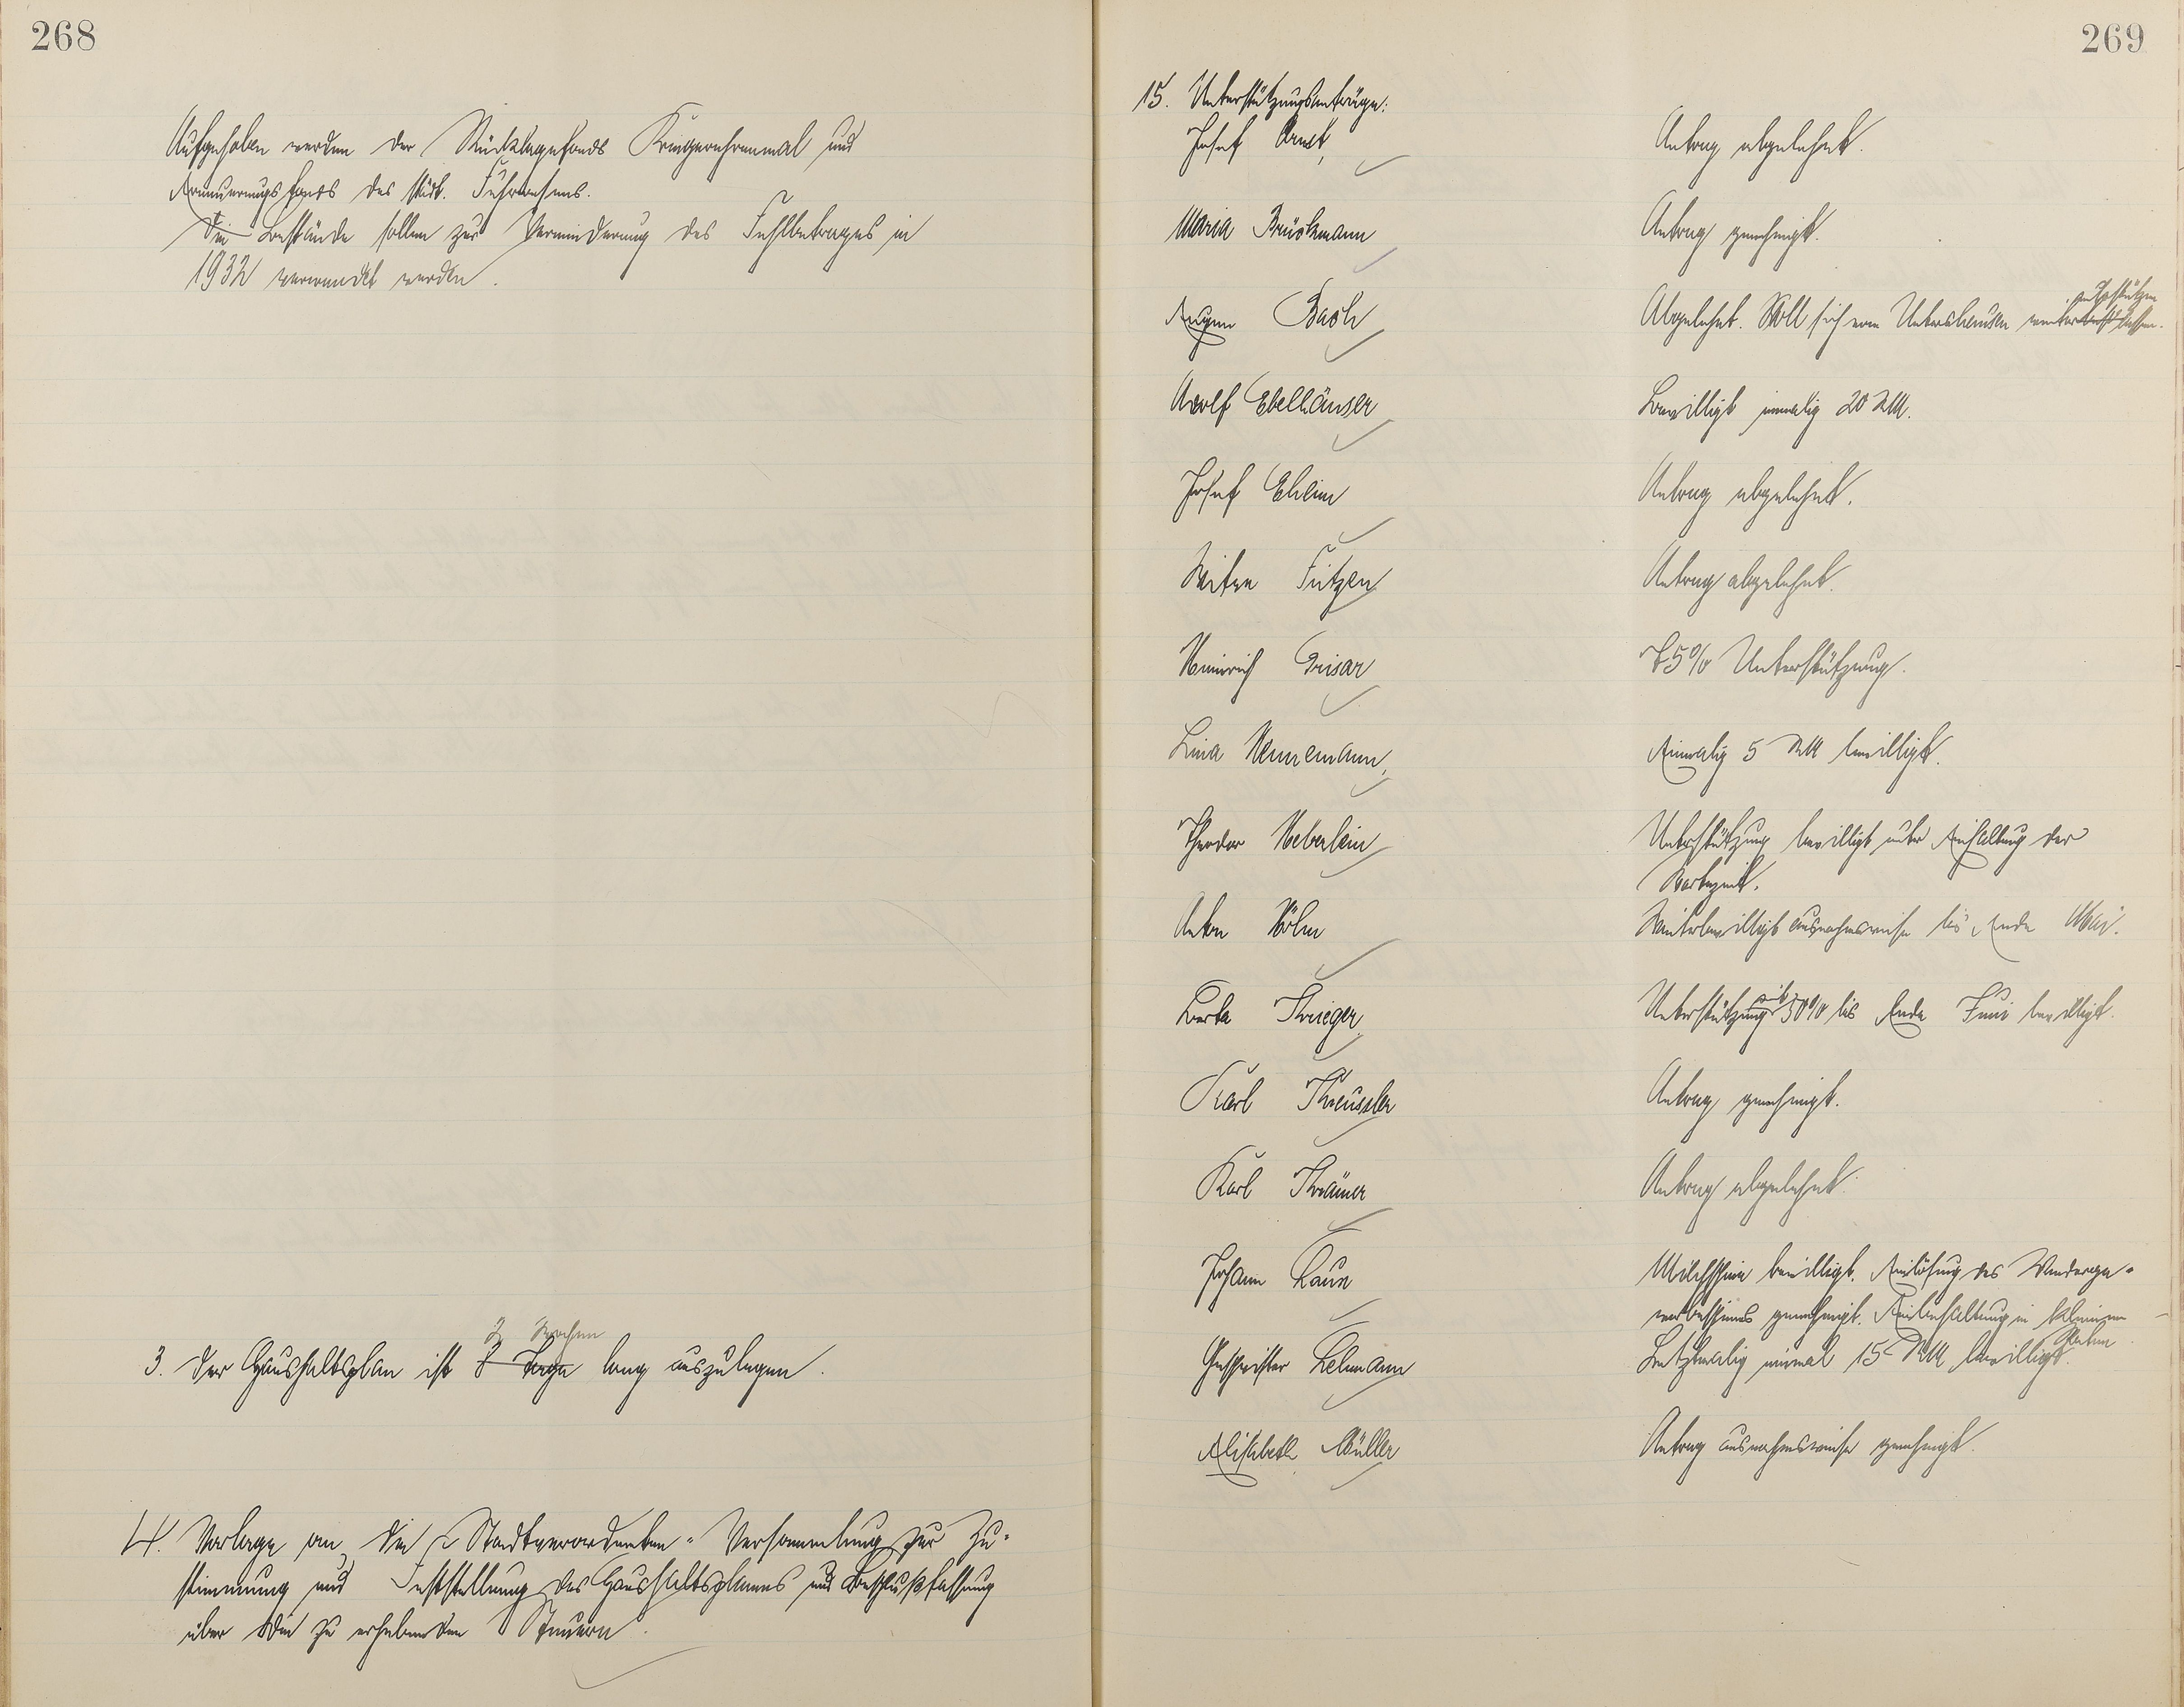 268
Aufgehoben werden der Rücklagefonds Kriegerehrenmal und
Erneuerungsfonds des städt. Fuhrwesens.
Die Bestände sollen zur Verminderung des Fehlbetrages in
1932 verwendet werden.
2 Wochen
3. Der Haushaltsplan ist 8 Tage lang auszulegen.
4. Vorlage an die Stadtverordneten-Versammlung zur Zu-
stimmung und Feststellung des Haushaltsplanes und Beschlußfassung
über die zu erhebenden Steuern.
269
15. Unterstützungsanträge:
Josef Arnst, Antrag abgelehnt.
Maria Brückmann Antrag genehmigt.
Eugen Bach Abgelehnt. Soll sich vom
Adolf Ebelhäuser Bewilligt einmalig 20 RM.
Josef Ehlen Antrag abgelehnt.
Witwe Fützen Antrag abgelehnt.
Heinrich Grisar 75% Unterstützung.
Lina Hennemann, Einmalig 5 RM bewilligt.
Theodor Heberlein Unterstützung bewilligt unter Einhaltung der
Wartezeit.
Anton Höhn Weiterbewilligt ausnahmsweise bis Ende Mai.
Berta Krieger Unterstützung mit 50% bis Ende Juni bewilligt.
Karl Kreussler Antrag genehmigt.
Karl Krämer Antrag abgelehnt.
Johann Laux Milchschein bewilligt. Einlösung des Wanderge-
werbescheines genehmigt. Einbehaltung in kleineren
Raten.
Geschwister Lehmann Letztmalig einmal 15 RM bewilligt.
Elisabeth Müller Antrag ausnahmsweise genehmigt.